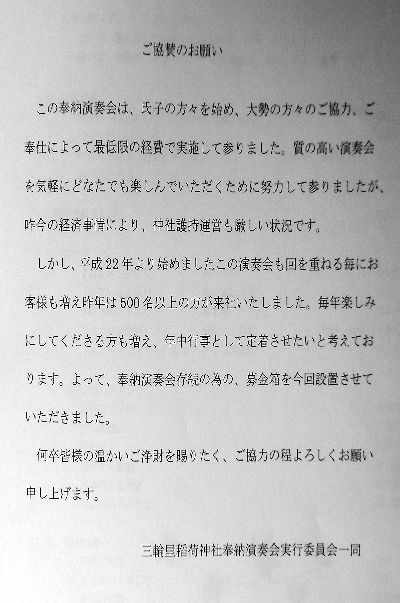 ご協賛のお願い
この奉納演奏会は、氏子の方々を始め、大勢の方々のご協力、ご
奉仕によって最低限の経費で実施して参りました。質の高い演奏会
を気軽にどなたでも楽しんでいただくために努力して参りましたが、
昨今の経済事情により、神社護持運営も厳しい状況です。
しかし、平成22年より始めましたこの演奏会も回を重ねる毎にお
客様も増え昨年は500名以上の方が来社いたしました。毎年楽しみ
にしてくださる方も増え、年中行事として定着させたいと考えてお
ります。よって、奉納演奏会存続の為の、募金箱を今回設置させて
いただきました。
何卒皆様の温かいご浄財を賜りたく、ご協力の程よろしくお願い
申し上げます。
三輪里稲荷神社奉納演奏会実行委員会一同